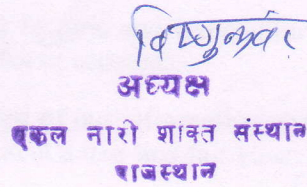 अध्यक्ष
एकल नारी शक्ति संस्थान
राजस्थान